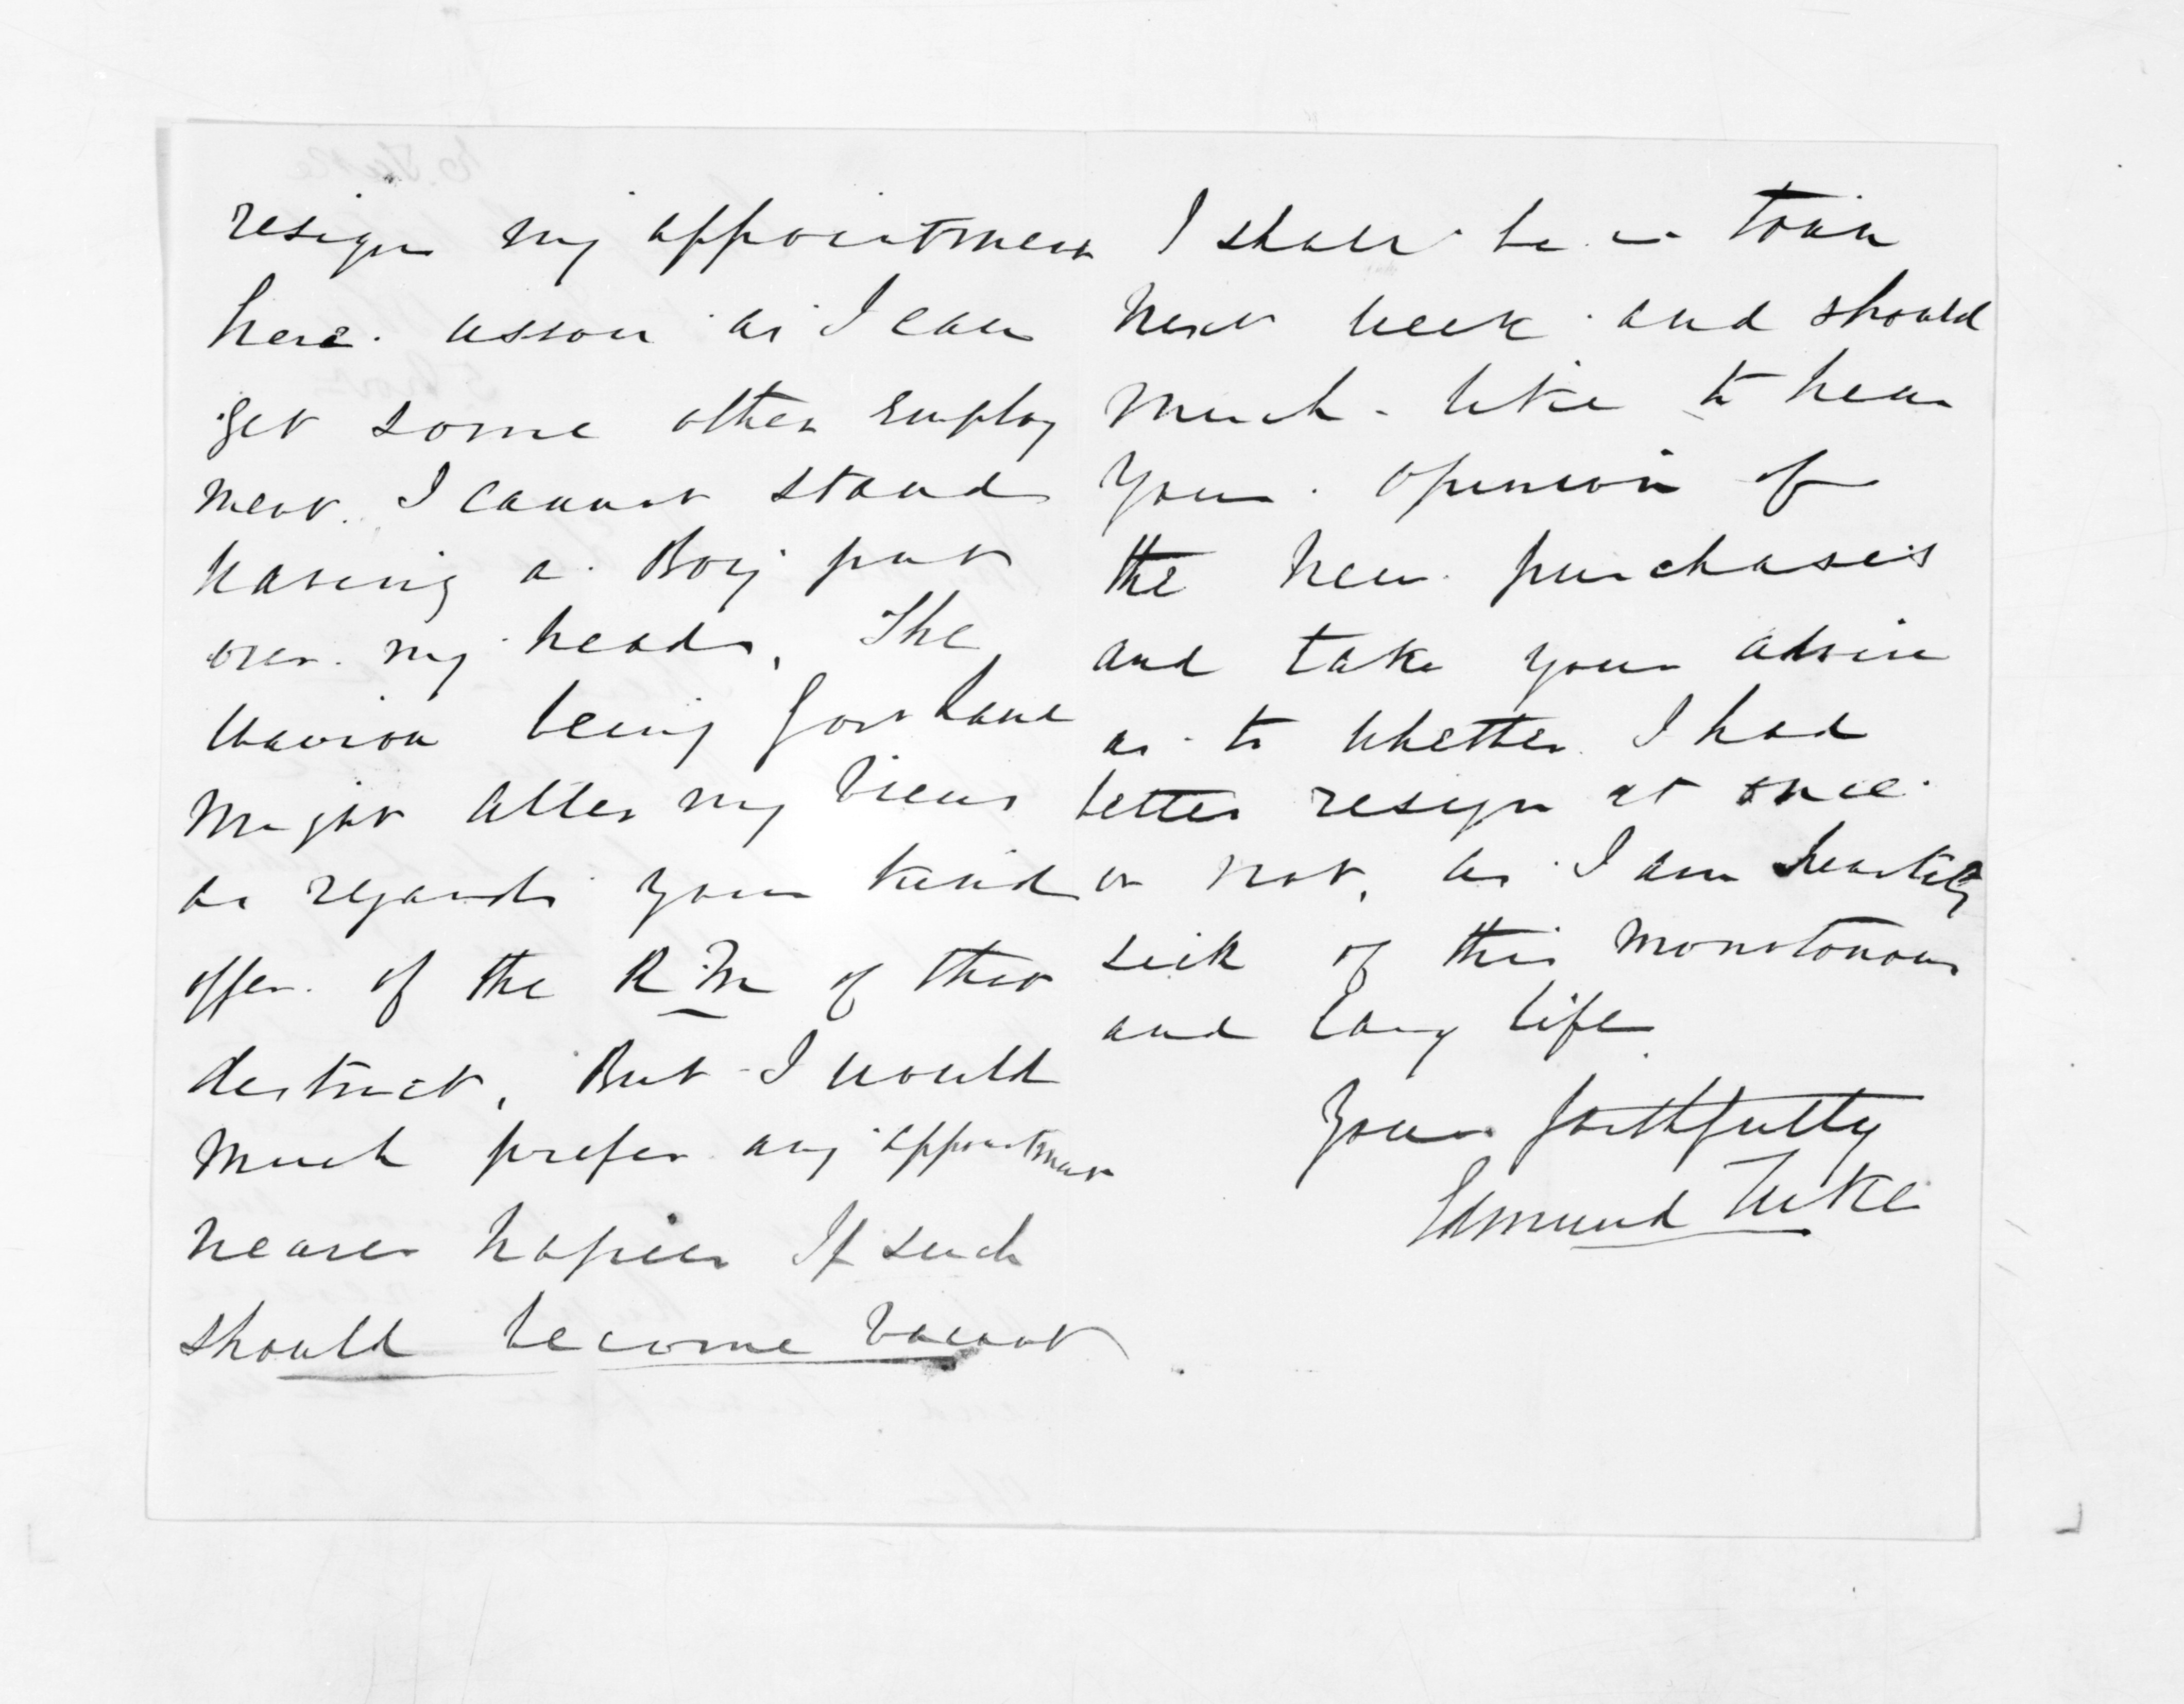 resign my appointment
here. assoon as I can
get some other employ
ment. I cannot stand
having a Boy put
over my head, The
Wairoa being Govt land
Might alter my views
as regards your kind
offer of the R M of that
destrict, But I would
much prefer any appointment
nearer Napier If such
should become vacant
I shall be in town
next week and should
much like to hear
your opinion of
the new purchases
and take your advice
as to whether I had
better resign at once
or not, as I am heartily
sick of this monotonous
and lazy life
Yours faithfully
Edmund Tuke